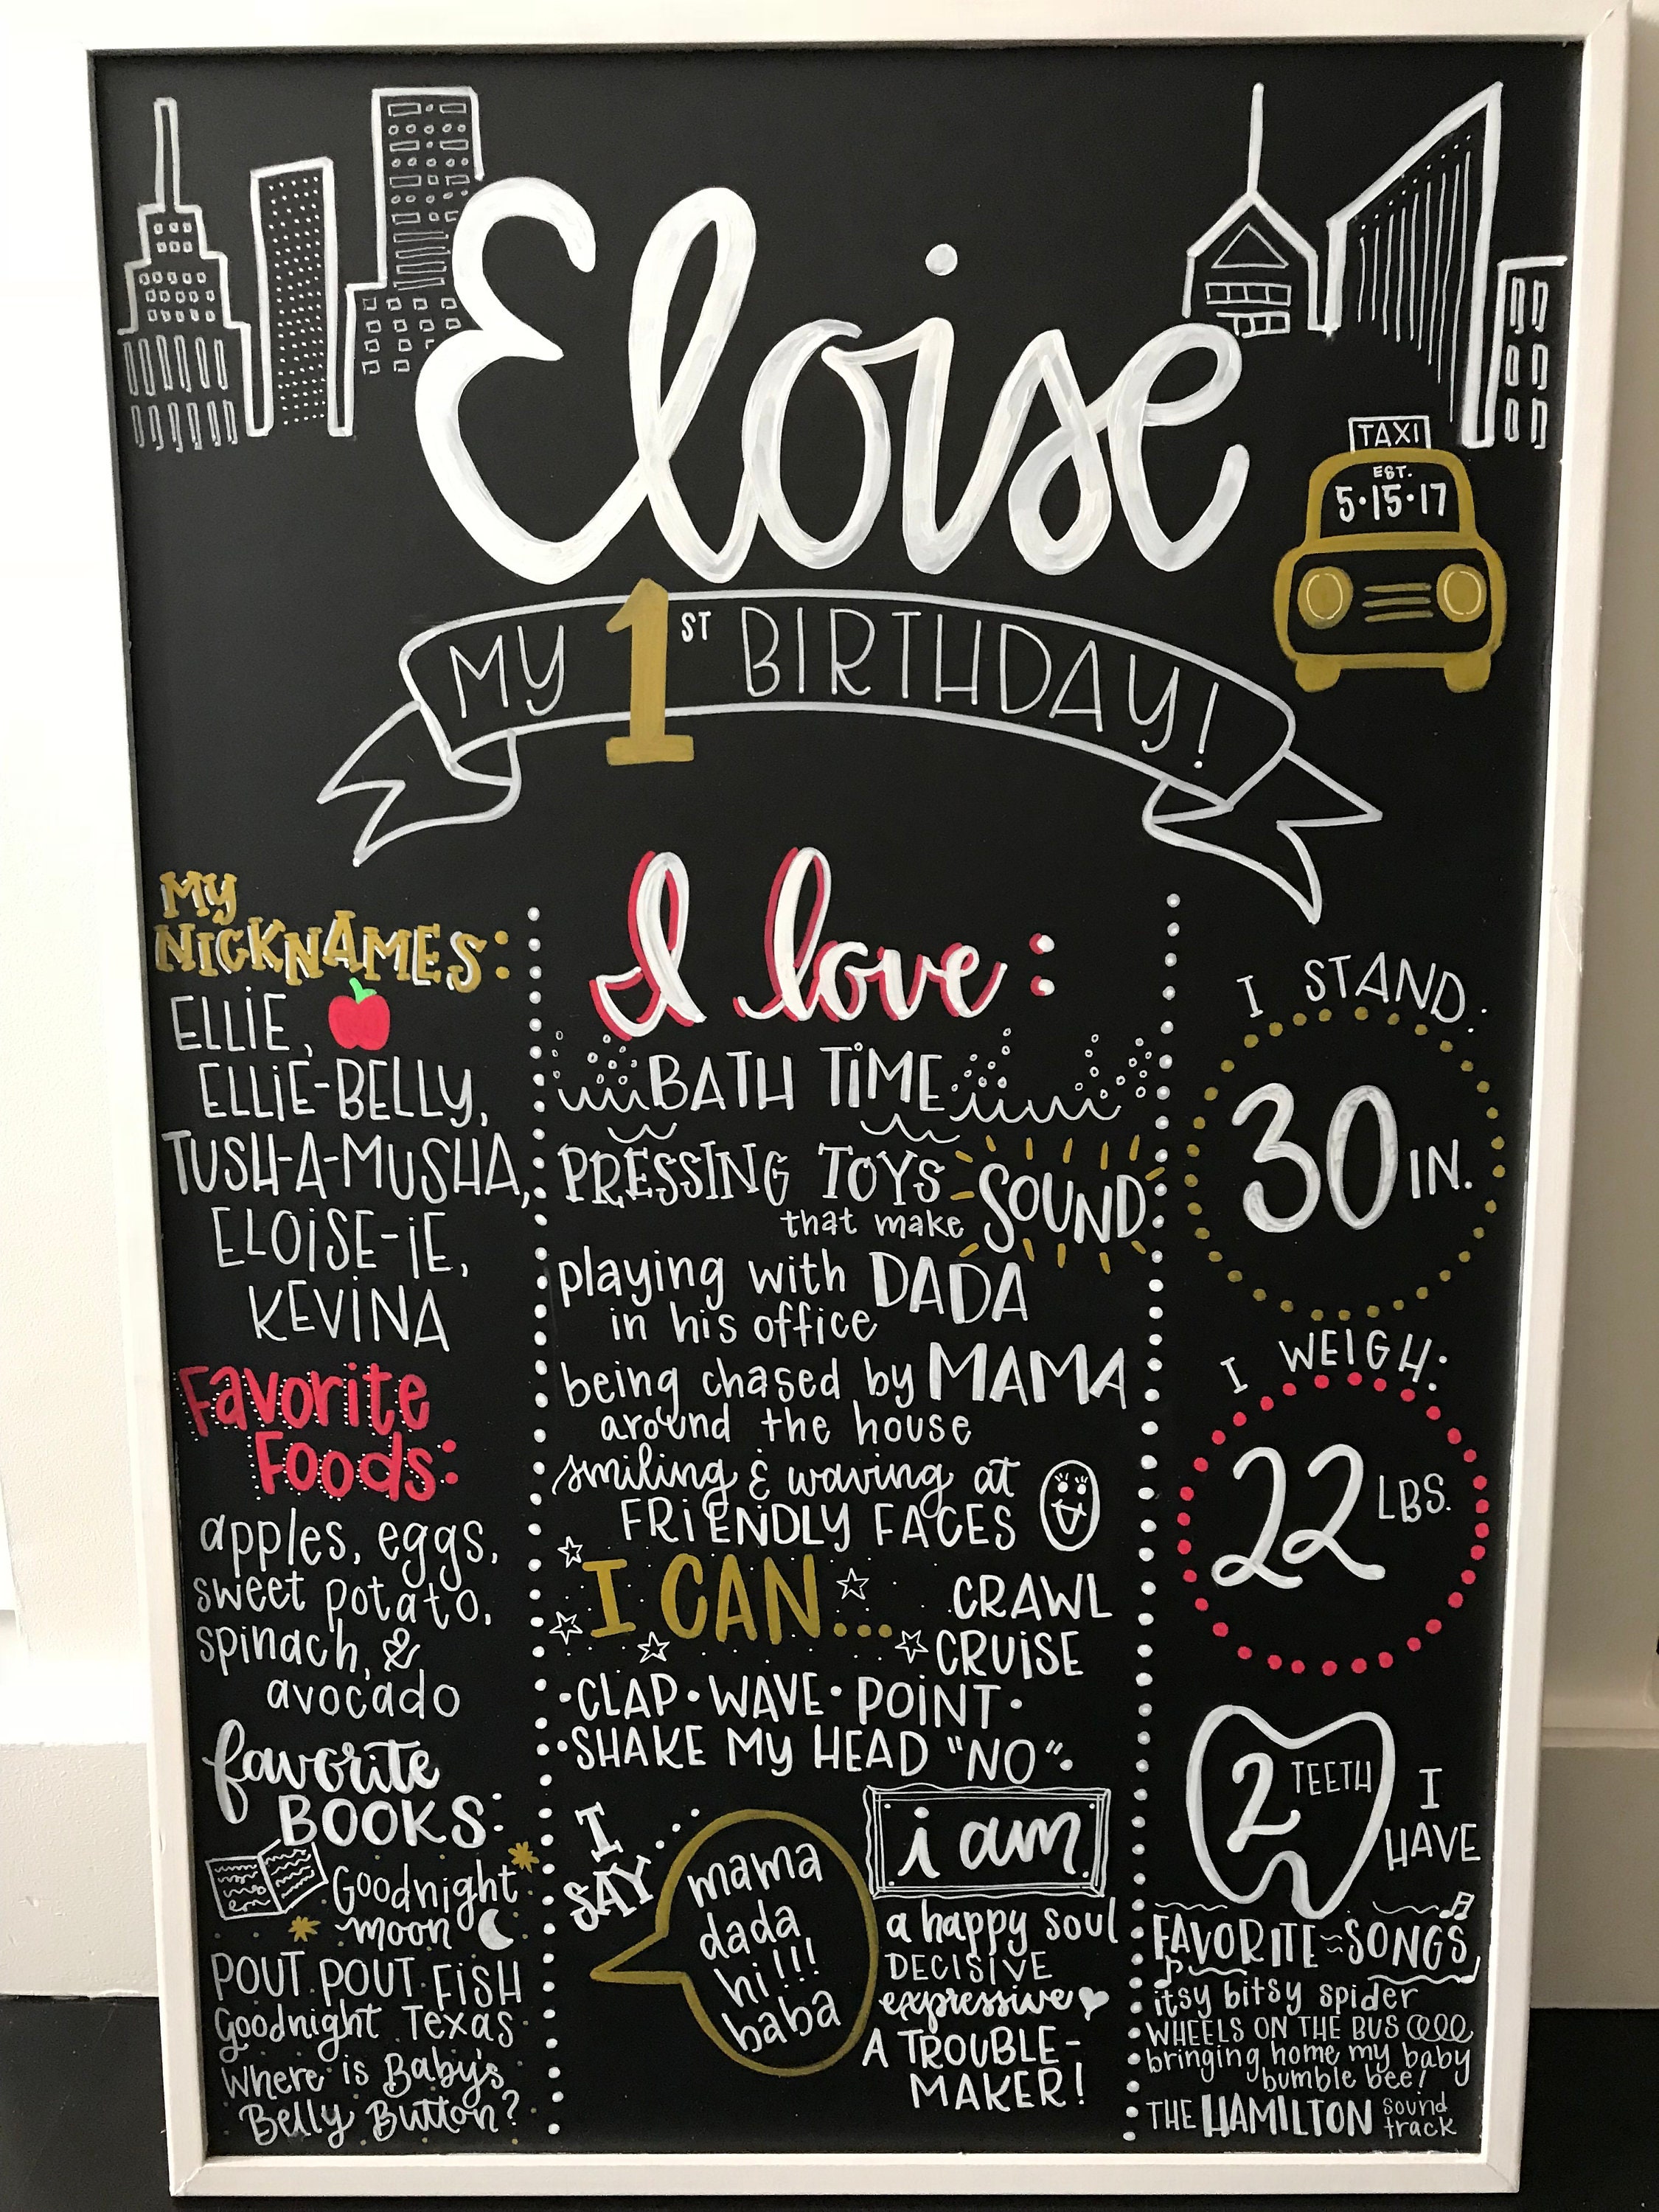 Eloise
TAXI
EST.
5·15·17
MY 1ST BIRTHDAY!
MY
NICKNAMES:
ELLIE,
ELLIE-BELLY,
TUSH-A-MUSHA,
ELOISE-IE,
KEVINA
Favorite
Foods:
apples, eggs,
sweet potato,
spinach, &
avocado
favorite
BOOKS:
Goodnight
moon
POUT POUT FISH
Goodnight Texas
Where is Baby's
Belly Button?
I love:
BATH TIME
PRESSING TOYS
that make SOUND
playing with DADA
in his office
being chased by MAMA
around the house
smiling & waving at
FRIENDLY FACES
I CAN...
CRAWL
CRUISE
·CLAP·WAVE·POINT·
·SHAKE MY HEAD "NO"·
I
SAY...
mama
dada
hi!!!
baba
i am
a happy soul
DECISIVE
expressive
A TROUBLE-
MAKER!
I STAND:
30 IN.
I WEIGH:
22 LBS.
2 TEETH
I
HAVE
FAVORITE SONGS
itsy bitsy spider
WHEELS ON THE BUS
bringing home my baby
bumble bee!
THE HAMILTON sound
track